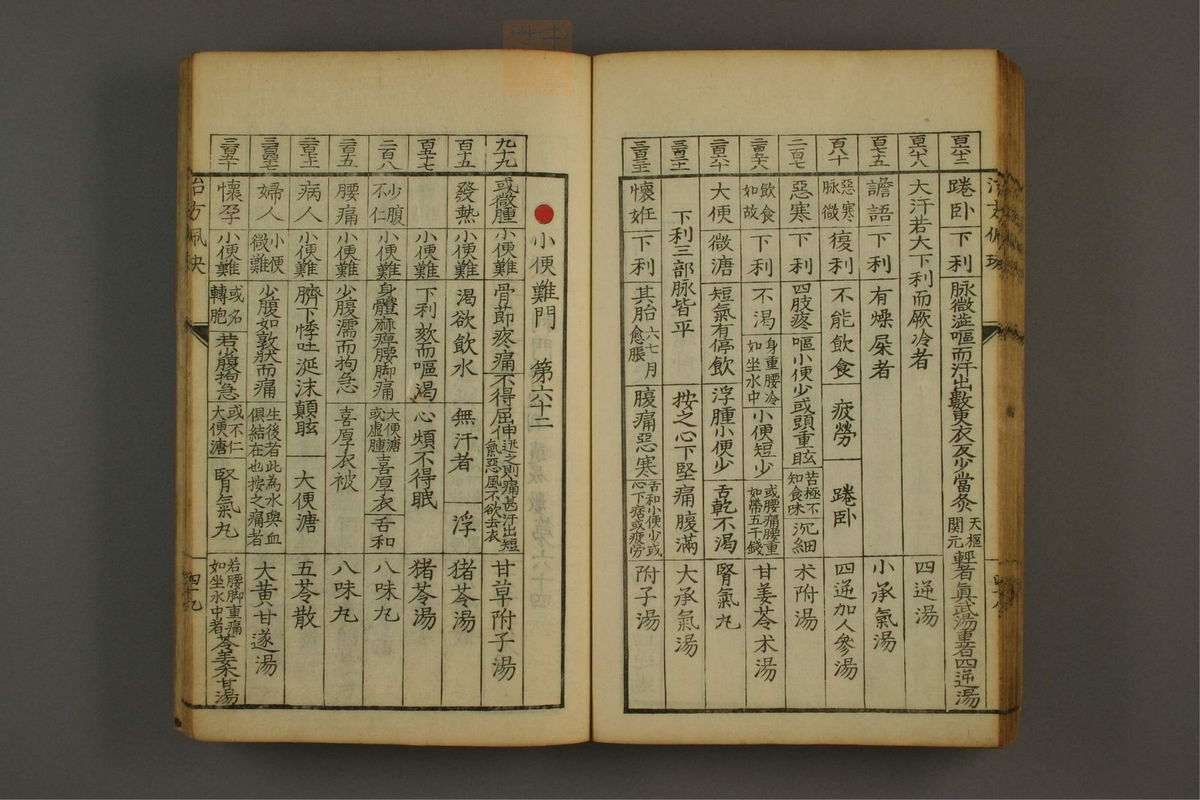 百六十二 踡卧 下利 脉微澁嘔而汗出數更衣反少當灸天樞関元 輕者眞武湯重者四逆湯
百六十八 大汗若大下利而厥冷者 四逆湯
百七十五 譫語 下利 有燥屎者 小承氣湯
百八十 惡寒脉微 復利 不能飲食 疲勞 踡卧 四逆加人參湯
二百七 惡寒 下利 四肢疼 嘔小便少或頭重眩 苦極不知食味 沉細 术附湯
飲食如故 下利 不渴 身重腰冷如坐水中 小便短少 或腰痛腰重如帶五千錢 甘姜苓术湯
大便 微溏 短氣有停飲 浮腫小便少 舌乾不渴 腎氣丸
下利三部脉皆平 按之心下堅 痛腹滿 大承氣湯
懷姙 下利 其胎六七月愈脹 腹痛惡寒 舌和小便少或心下痞或疲勞 附子湯
小便難門 第六十二
九十九 或微腫 小便難 骨節疼痛 不得屈伸近之則痛甚汗出短氣惡風不欲去衣 甘草附子湯
百十五 發熱 小便難 渴欲飲水 無汗者 浮 猪苓湯
百五十七 小便難 下利欬而嘔渴 心煩不得眠 猪苓湯
二百八 少腹不仁 小便難 身體麻痺腰脚痛 大便溏或虛腫 喜厚衣 舌和 八味丸
腰痛 小便難 少腹濡而拘急 喜厚衣被 八味丸
病人 小便難 臍下悸吐涎沫顛眩 大便溏 五苓散
婦人 小便微難 少腹如敦狀而痛 生後者此為水與血俱結在也按之痛者 大黃甘遂湯
懷孕 小便難 或名轉胞 若少腹拘急 或不仁大便溏 腎氣丸 若腰脚重痛如坐水中者苓姜术甘湯